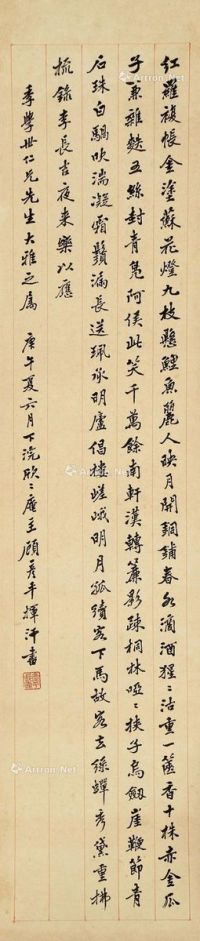 紅羅複帳金塗蘇花燈九枝懸鯉魚麗人映月開銅鋪春水滴酒猩〻沽重一篋香十株赤金瓜
子兼雜麩五絲封青鳧阿侯此笑千萬餘南軒漢轉簾影疎桐林啞〻挾子烏劔崖鞭節青
石珠白騧吹湍凝霜鬚漏長送珮承明廬倡樓嵯峨明月孤續客下馬故客去綠蟬秀黛重拂
梳錄李長吉夜来樂以應
季學世仁兄先生大雅之属 庚午夏六月下浣欣〻庵主顧彥平揮汗書